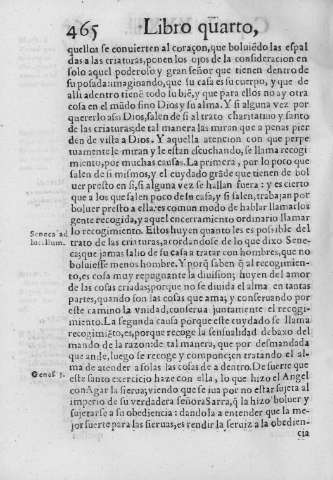 465 Libro quarto,
quellos se conuierten al coraçon, que boluiẽdo las espal
das a las criaturas, ponen los ojos de la consideracion en
solo aquel poderoso y gran señor que tienen dentro de
su posada: imaginando, que su casa es su cuerpo, y que de
alli adentro tienẽ todo su biẽ, y que para ellos no ay otra
cosa en el mũdo sino Dios y su alma. Y si alguna vez por
quererlo assi Dios, salen de si al trato charitatiuo y santo
de las criaturas; de tal manera las miran que a penas pier
den de vista a Dios. Y aquella atencion con que perpe
tuamente le miran y le estan escuchando, se llama recogi
miento, por muchas causas. La primera, por lo poco que
salen de si mismos, y el cuydado grãde que tienen de bol
uer presto en si, si alguna vez se hallan fuera: y es cierto
que a los que salen poco de su casa, y si salen, trabajan por
boluer presto a ella: es comun modo de hablar llamarlos
gente recogida, y aquel encerramiento ordinario llamar
Seneca ad
lucillum.
lo recogimiento. Estos huyen quanto les es possible del
trato de las criaturas, acordandose de lo que dixo Sene-
ca; que jamas salio de su casa a tratar con hombres, que no
boluiesse menos hombre. Y porq̃ saben q̃ al recogimien-
to, es cosa muy repugnante la diuision; huyen del amor
de las cosas criadas; porque no se diuida el alma en tantas
partes, quando son las cosas que ama; y conseruando por
este camino la vnidad, conserua juntamente el recogi-
miento. La segunda causa porque este cuydado se llama
recogimiẽto, es, porque recoge la sensualidad debaxo del
mando de la razon: de tal manera, que por desmandada
que ande, luego se recoge y compone; en tratando el al-
ma de atender a solas las cosas de a dentro. De suerte que
Genes
este santo exercicio haze con ella, lo que hizo el Angel
con Agar la sierua; viendo que se iua por no estar sujeta al
imperio de su verdadera señora Sarra, q̃ la hizo boluer y
sujetarse a su obediencia: dandola a entender que la me-
jor suerte para las sieruas, es rendir la ceruiz a la obedien-
cia